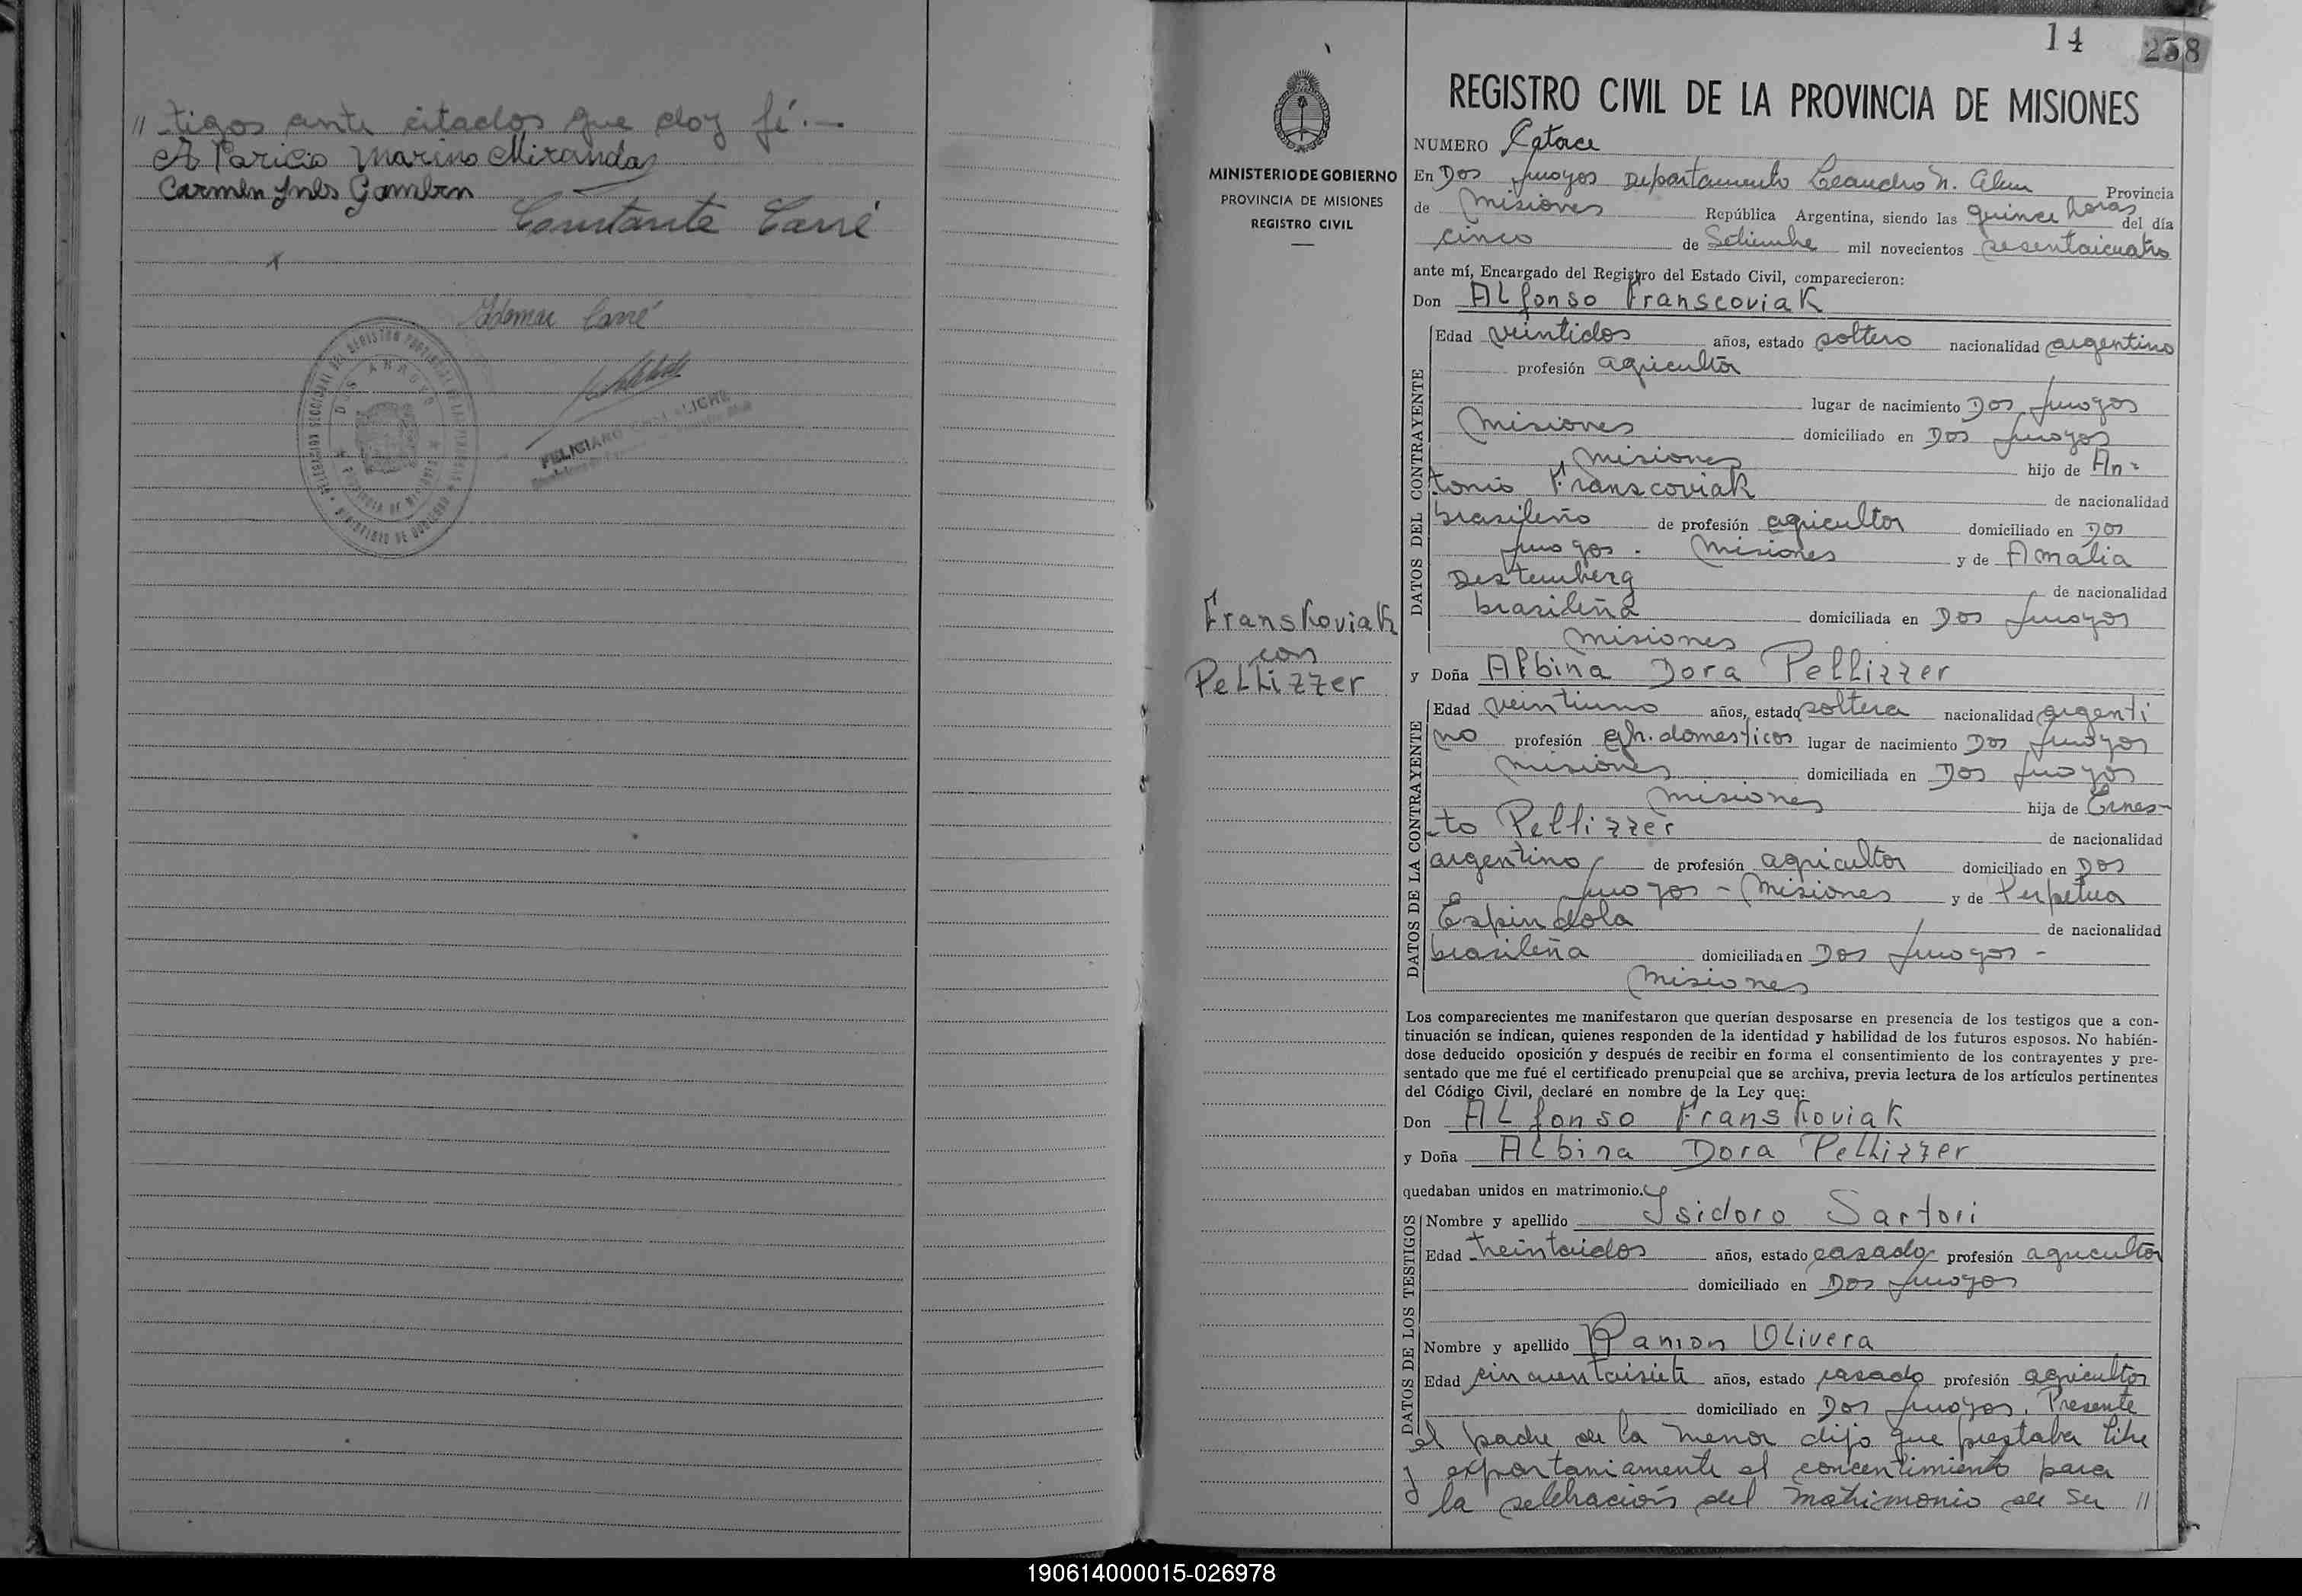 // tigos ante citados que doy fé.—
Aparicio Marino Miranda
Carmen Ynes
Constante Carré
Carré
DOS ARROYOS
FELICIANO
14
258
REGISTRO CIVIL DE LA PROVINCIA DE MISIONES
MINISTERIO DE GOBIERNO
PROVINCIA DE MISIONES
REGISTRO CIVIL
Franskoviak
con
Pellizzer
NUMERO Catorce
En Dos Arroyos Departamento Leandro N. Alem Provincia
de Misiones República Argentina, siendo las quince horas del día
cinco de Setiembre mil novecientos sesentaicuatro
ante mí, Encargado del Registro del Estado Civil, comparecieron:
Don ALfonso Franscoviak
DATOS DEL CONTRAYENTE
Edad veintidos años, estado soltero nacionalidad argentino
profesión agricultor
lugar de nacimiento Dos Arroyos
Misiones domiciliado en Dos Arroyos
Misiones hijo de An=
tonio Franscoviak de nacionalidad
brasileño de profesión agricultor domiciliado en Dos
Arroyos. Misiones y de Amalia
Destemberg de nacionalidad
brasileña domiciliada en Dos Arroyos
Misiones
y Doña Albina Dora Pellizzer
DATOS DE LA CONTRAYENTE
Edad veintiuno años, estado soltera nacionalidad argenti
no profesión qh. domesticos lugar de nacimiento Dos Arroyos
Misiones domiciliada en Dos Arroyos
Misiones hija de Ernes-
to Pellizzer de nacionalidad
argentino de profesión agricultor domiciliado en Dos
Arroyos - Misiones y de Perpetua
Espindola de nacionalidad
brasileña domiciliada en Dos Arroyos -
Misiones
Los comparecientes me manifestaron que querían desposarse en presencia de los testigos que a con-
tinuación se indican, quienes responden de la identidad y habilidad de los futuros esposos. No habién-
dose deducido oposición y después de recibir en forma el consentimiento de los contrayentes y pre-
sentado que me fué el certificado prenupcial que se archiva, previa lectura de los artículos pertinentes
del Código Civil, declaré en nombre de la Ley que:
Don ALfonso Franskoviak
y Doña Albina Dora Pellizzer
quedaban unidos en matrimonio.
DATOS DE LOS TESTIGOS
Nombre y apellido Ysidoro Sartori
Edad treintaidos años, estado casado profesión agricultor
domiciliado en Dos Arroyos
Nombre y apellido Ramon Olivera
Edad cincuentaisiete años, estado casado profesión agricultor
domiciliado en Dos Arroyos. Presente
el padre de la menor dijo que prestaba libre
y expontaniamente el concentimiento para
la selebración del matrimonio de su //
190614000015-026978